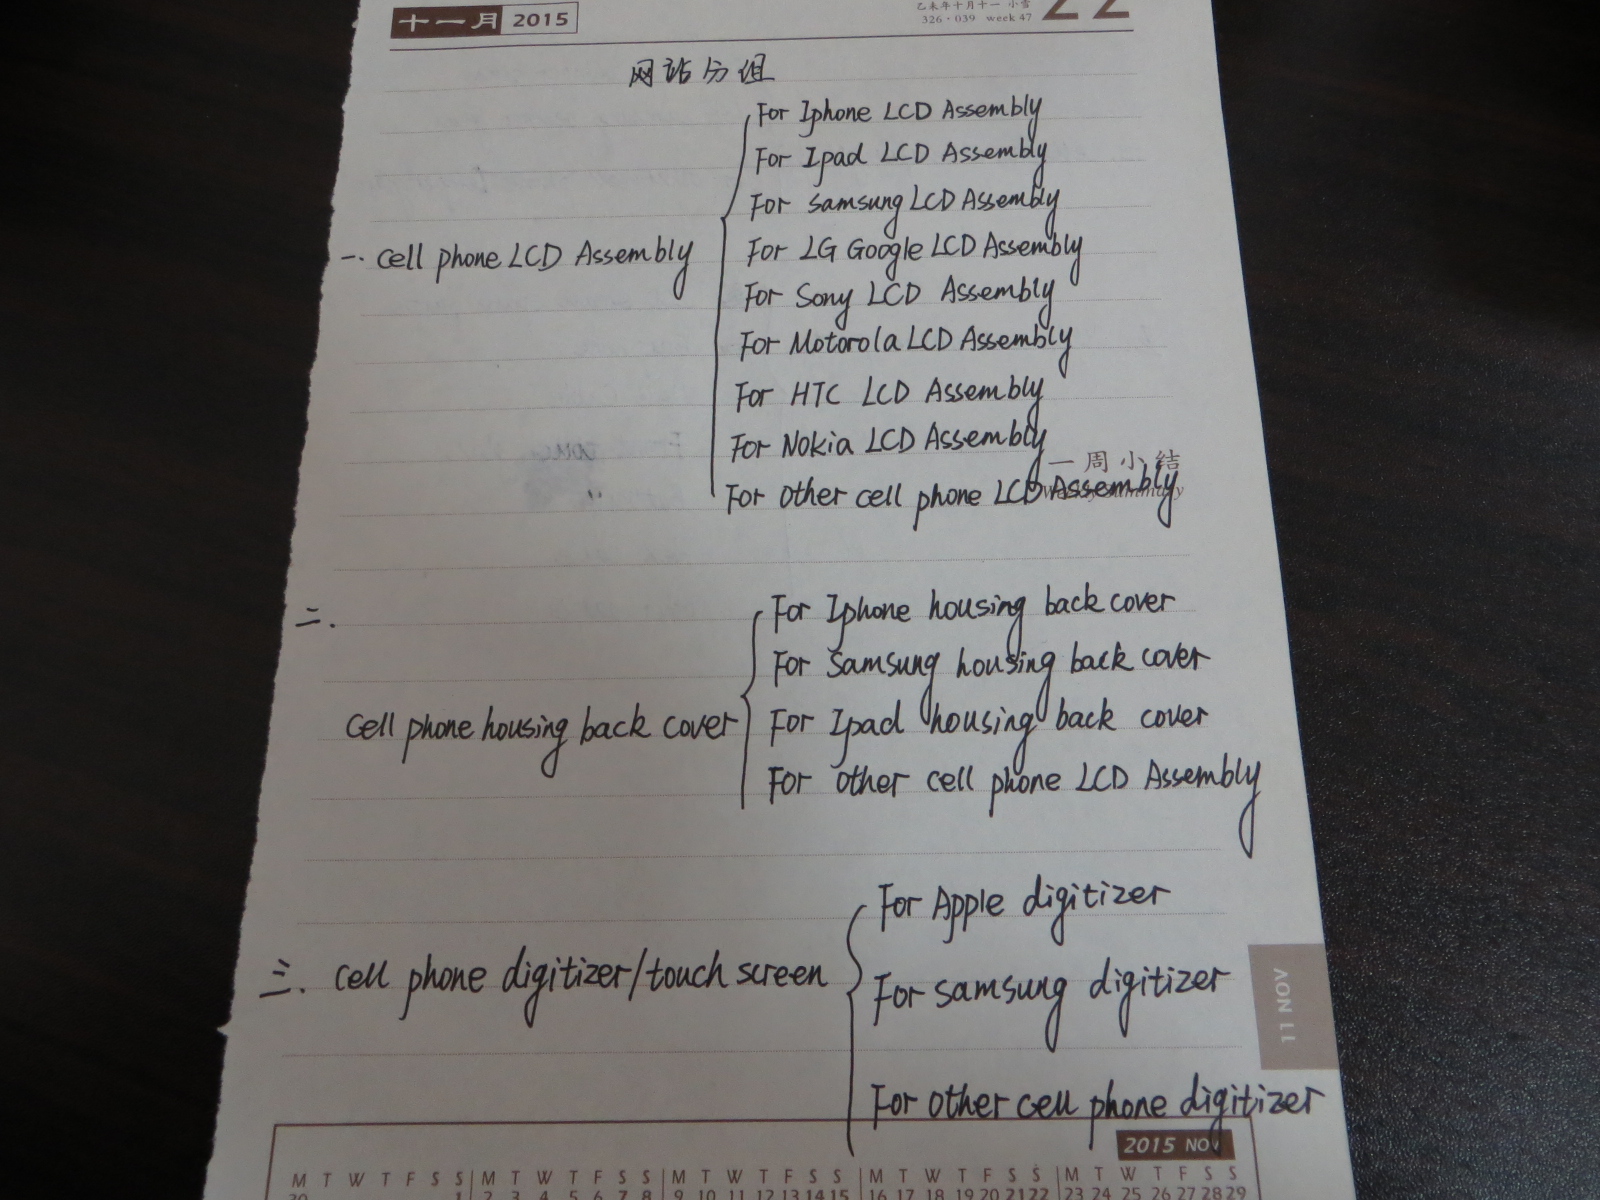 十一月 2015
乙未年十月十一 小雪
326 · 039 week 47
22
网站分组
For Iphone LCD Assembly
For Ipad LCD Assembly
For samsung LCD Assembly
一. cell phone LCD Assembly
For LG Google LCD Assembly
For Sony LCD Assembly
For Motorola LCD Assembly
For HTC LCD Assembly
For Nokia LCD Assembly
一周小结
For other cell phone LCD Assembly
二.
For Iphone housing back cover
For Samsung housing back cover
cell phone housing back cover
For Ipad housing back cover
For other cell phone LCD Assembly
For Apple digitizer
三. cell phone digitizer/touch screen
For samsung digitizer
11 NOV
For other cell phone digitizer
2015 NOV
M T W T F S S M T W T F S S M T W T F S S M T W T F S S M T W T F S S
30 1 2 3 4 5 6 7 8 9 10 11 12 13 14 15 16 17 18 19 20 21 22 23 24 25 26 27 28 29